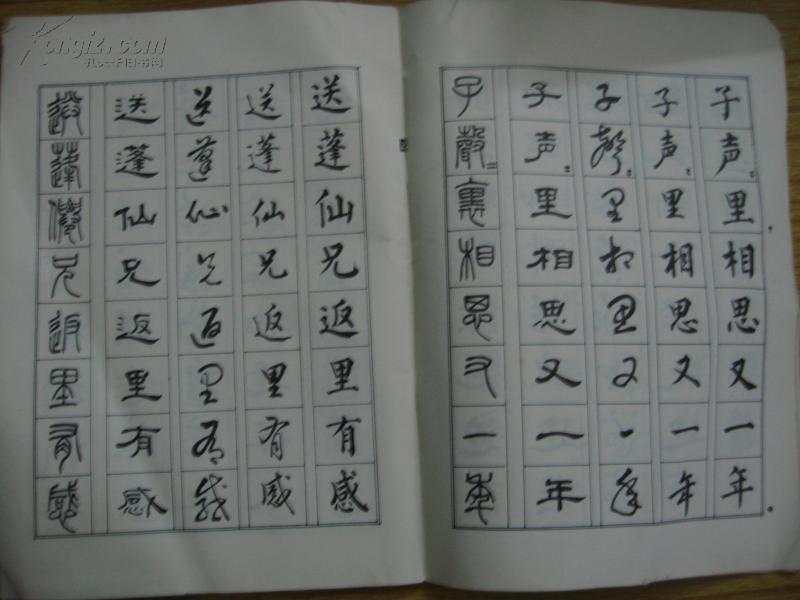 子声〻里相思又一年
子声〻里相思又一年
子聲〻里相思又一年
子声〻里相思又一年
子聲〻裏相思又一年
送蓬仙兄返里有感
送蓬仙兄返里有感
送蓬仙兄返里有感
送蓬仙兄返里有感
送蓬僊兄返里有感
Kongfz.com
孔夫子旧书网